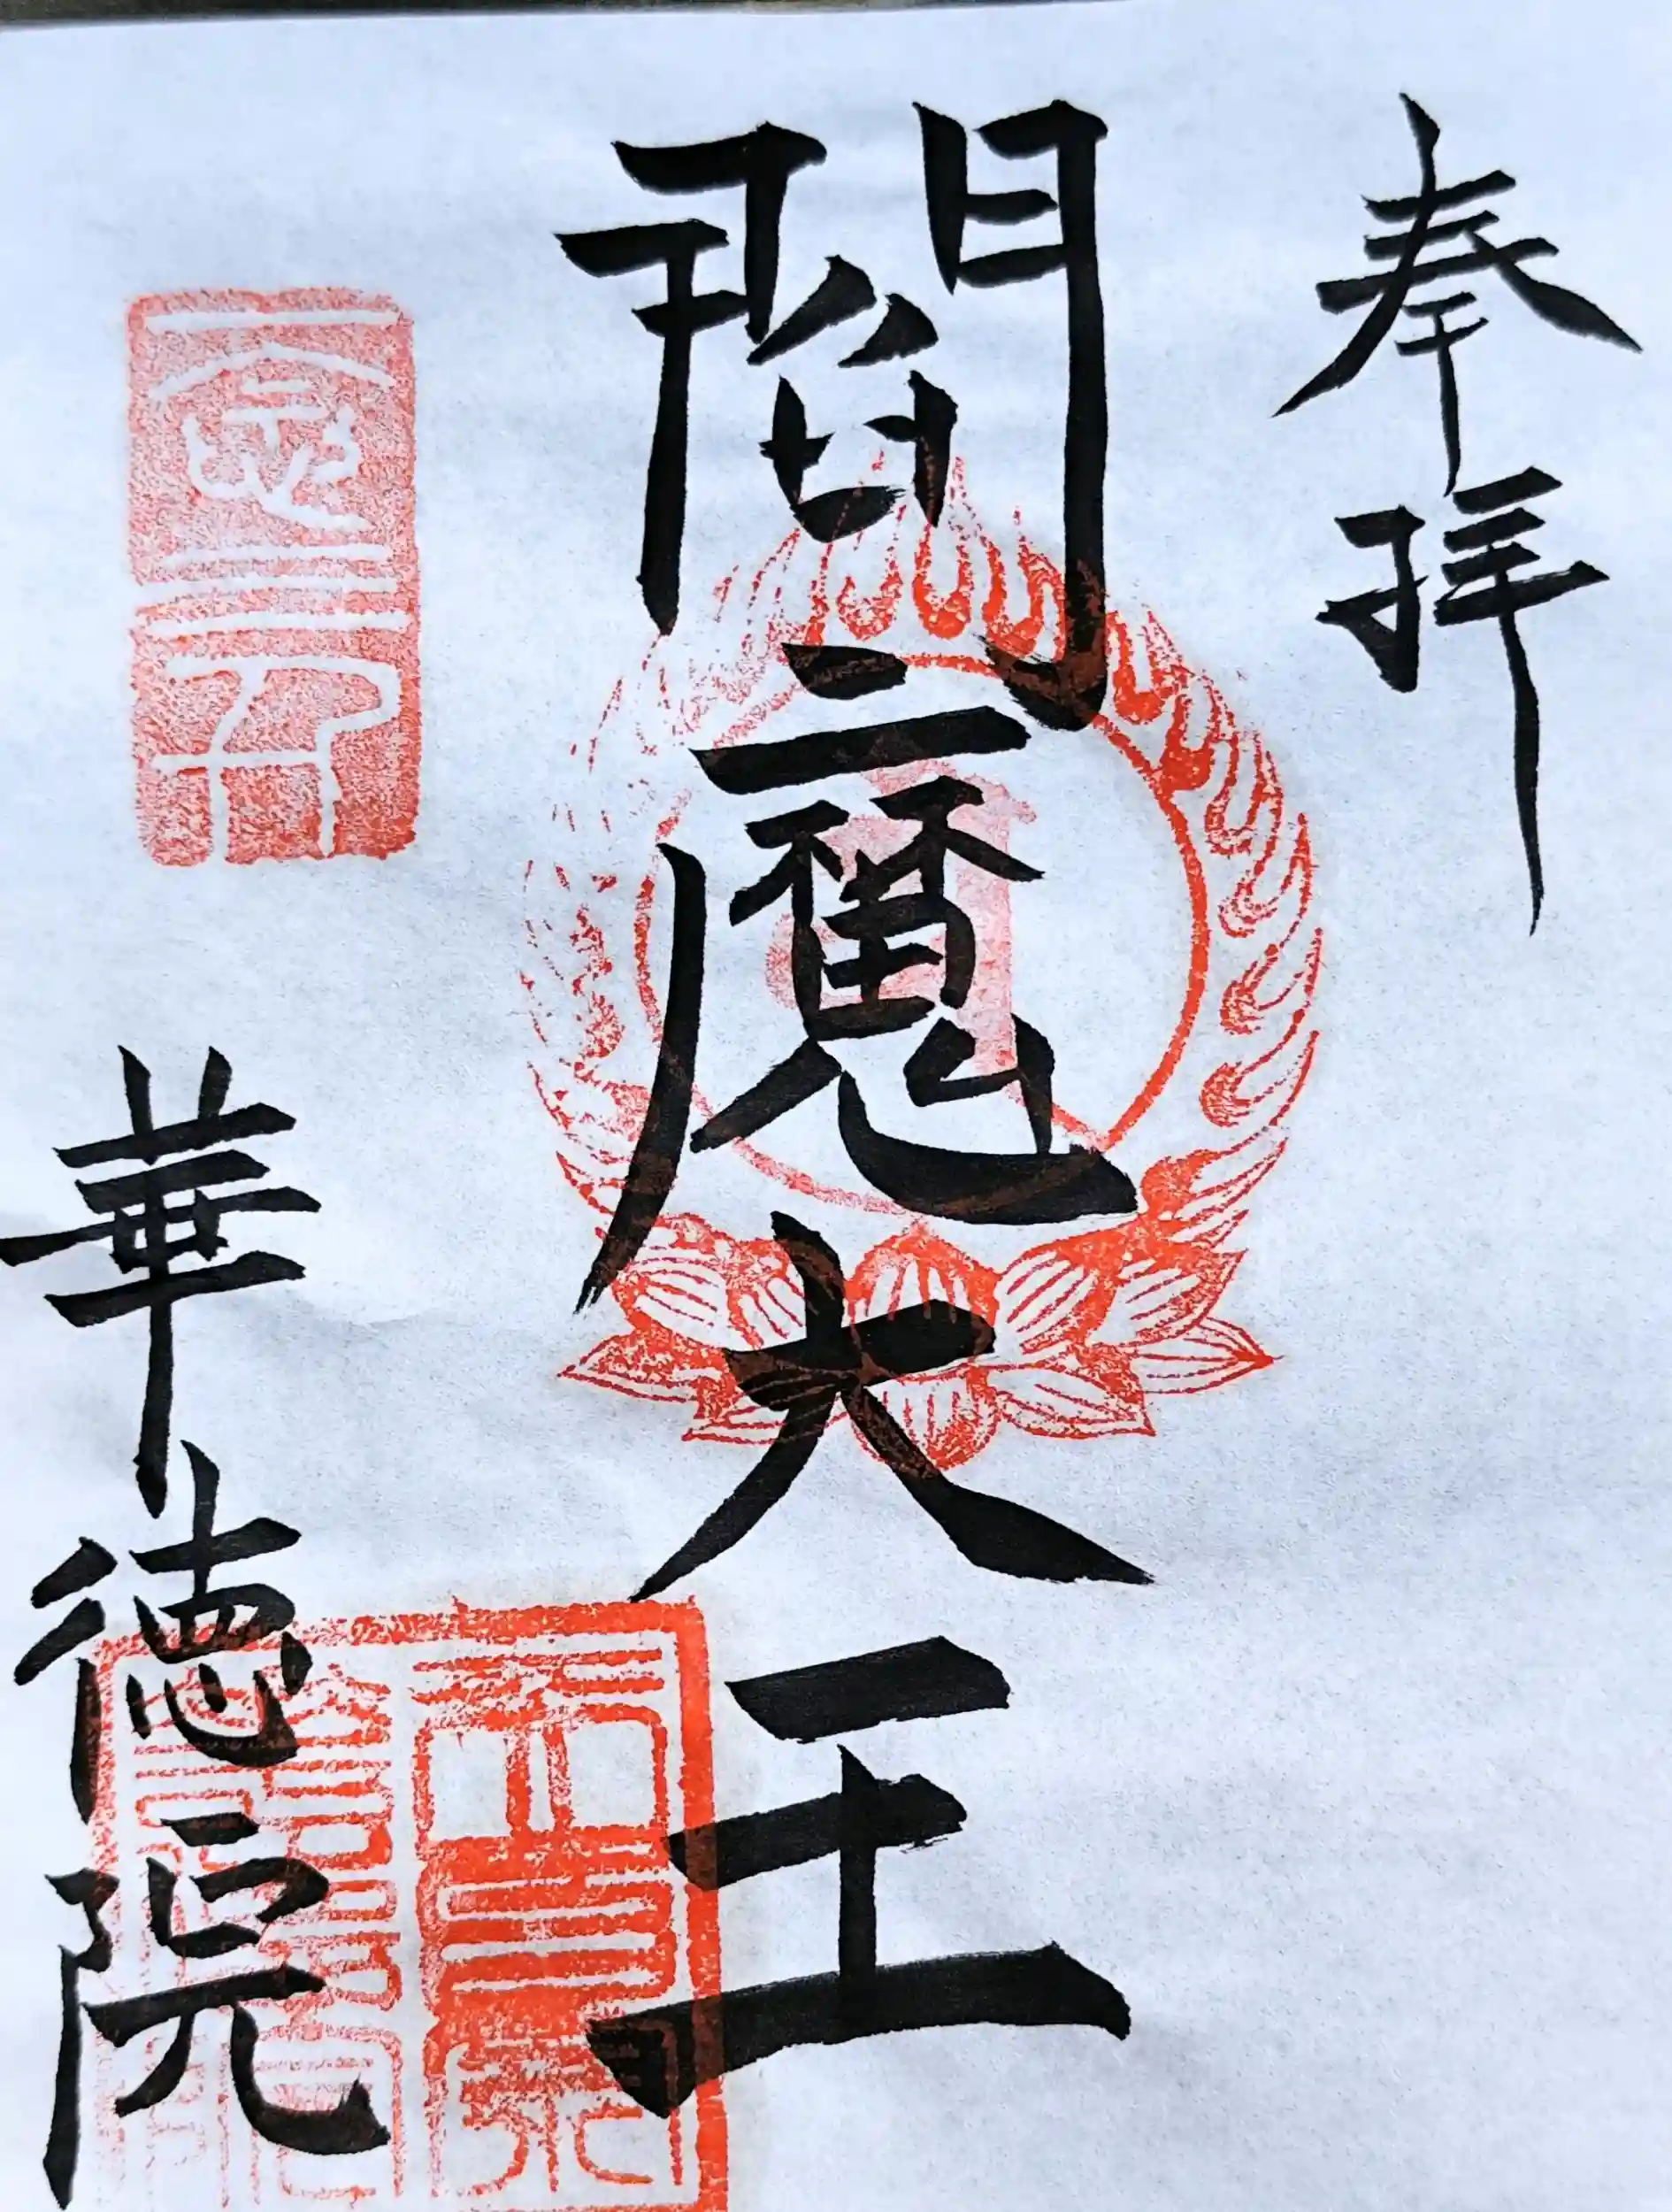 奉拝
閻魔大王
華徳院